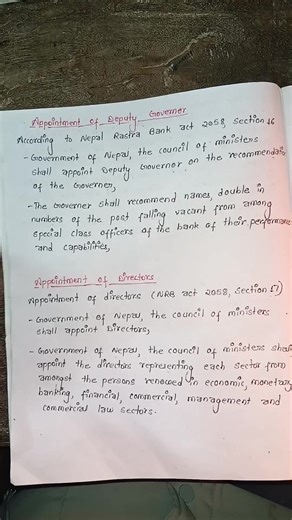 Appointment of Deputy Governer
According to Nepal Rastra Bank act 2058, Section 16
- Government of Nepal, the council of ministers
shall appoint Deputy Governor on the recommendation
of the Governer,
- The Governer shall recommend names, double in
numbers of the post falling vacant from among
special class officers of the bank of their performance
and capabilities,
Appointment of Directors
Appointment of directors (NRB act 2058, Section 17)
- Government of Nepal, the council of ministers
shall appoint Directors,
- Government of Nepal, the council of ministers shall
appoint the directors representing each sector from
amongst the persons renowed in economic, monetary,
banking, financial, commercial, management and
commercial law sectors.